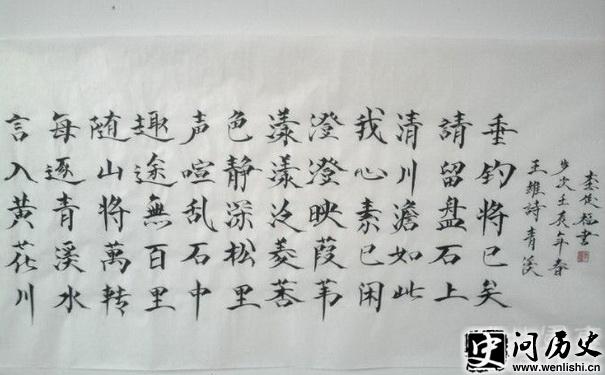 言入黄花川
每逐青溪水
随山将萬转
趣途無百里
声喧乱石中
色静深松里
漾漾泛菱莕
澄澄映葭苇
我心素已闲
清川澹如此
請留盘石上
垂钓将已矣
王維詩青溪
岁次壬辰年春
李俊書
问历史
www.wenlishi.cn